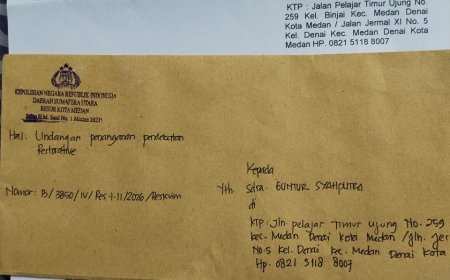 KTP : Jalan Pelajar Timur Ujung No.
259 Kel. Binjai Kec. Medan Denai
Kota Medan / Jalan Jermal XI No. 5
Kel. Denai Kec. Medan Denai Kota
Medan HP. 0821 5118 8007
KEPOLISIAN NEGARA REPUBLIK INDONESIA
DAERAH SUMATERA UTARA
RESOR KOTA MEDAN
Jalan H.M. Said No. 1 Medan 20231
Hal : Undangan penanganan pendekatan
Restorative
Nomor : B/ 3850 / IV / Res-1-11/2026 /Reskrim
Kepada
Yth. Sdra. GUNTUR SYAHPUTRA
di
KTP : Jln. pelajar Timur Ujung No. 259
kec. Medan Denai Kota Medan /Jln. Jer
No.5 Kel. Denai Kec. Medan Denai Kota
Hp. 0821 5118 8007